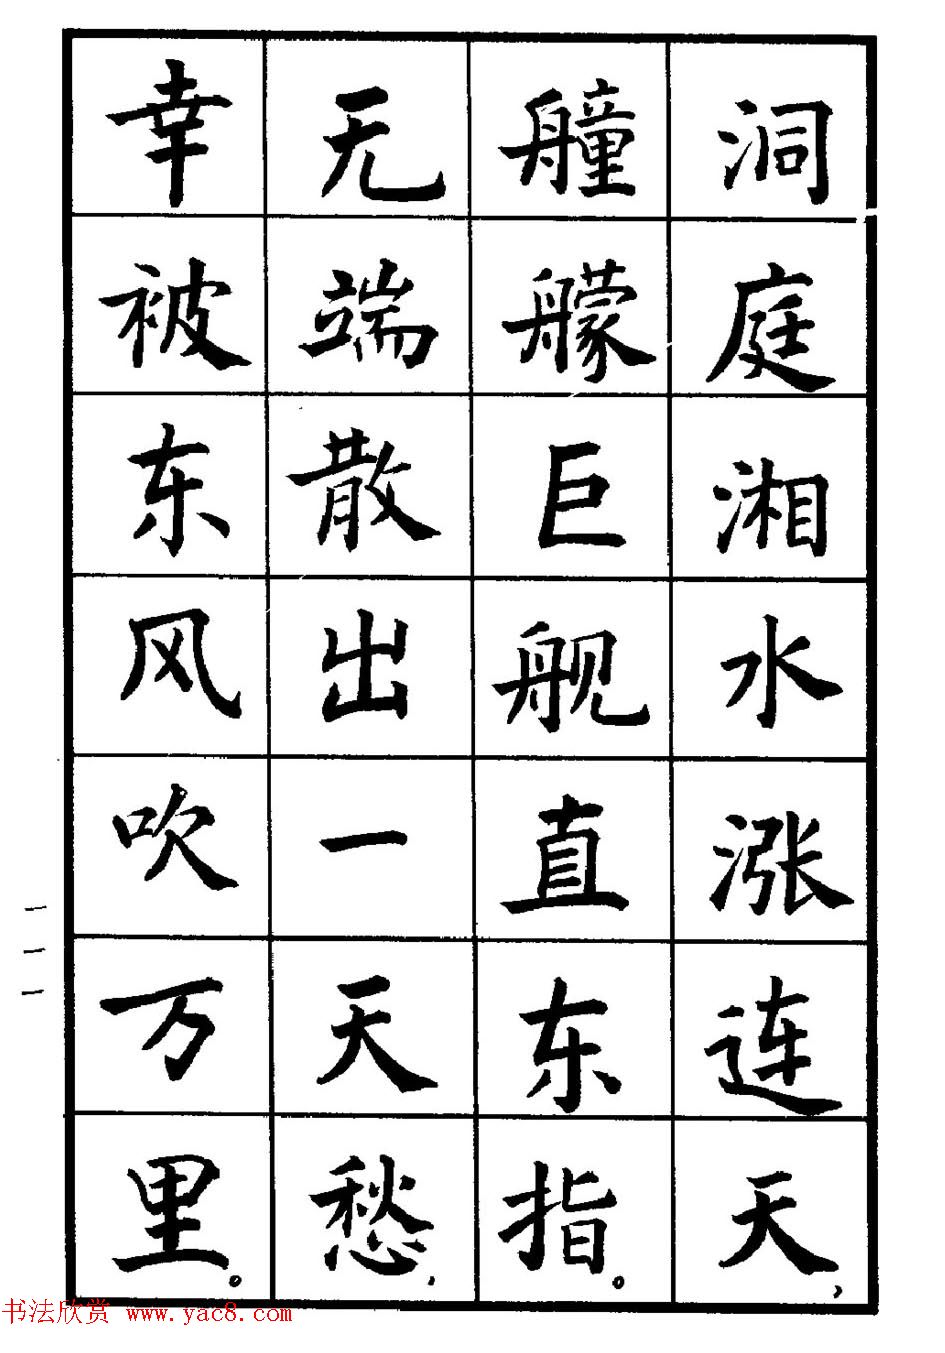 洞庭湘水涨连天，
艟艨巨舰直东指。
无端散出一天愁，
幸被东风吹万里。
一一一
书法欣赏 www.yac8.com